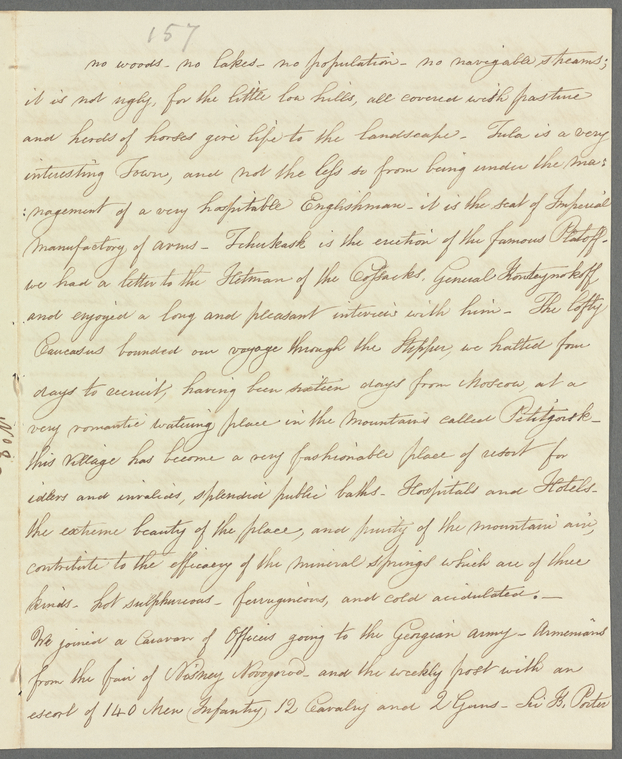 157
no woods - no lakes - no population - no navigable streams;
it is not ugly, for the little low hills, all covered with pasture
and herds of horses give life to the landscape - Tula is a very
interesting Town, and not the less so from being under the ma:
:nagement of a very hospitable Englishman - it is the seat of Imperial
Manufactory of arms - Tcherkask is the erection of the famous Platoff -
we had a letter to the Hetman of the Cossacks, General
and enjoyed a long and pleasant interview with him - The lofty
Caucasus bounded our voyage through the Stepper, we halted four
days to recruit, having been sixteen days from Moscow, at a
very romantic watering place in the Mountains called Petitgorsk -
this Village has become a very fashionable place of resort for
idlers and invalids, splendid public baths - Hospitals and Hotels -
the extreme beauty of the place, and purity of the mountain air,
contribute to the efficacy of the mineral springs which are of three
kinds - hot sulphurious - ferrugineous, and cold acidulated. -
We joined a Caravan of Officers going to the Georgian army - Armenians
from the fair of Nisney Novogorod - and the weekly post with an
escort of 140 Men (Infantry) 12 Cavalry and 2 Guns - Sir R. Porter
No 8